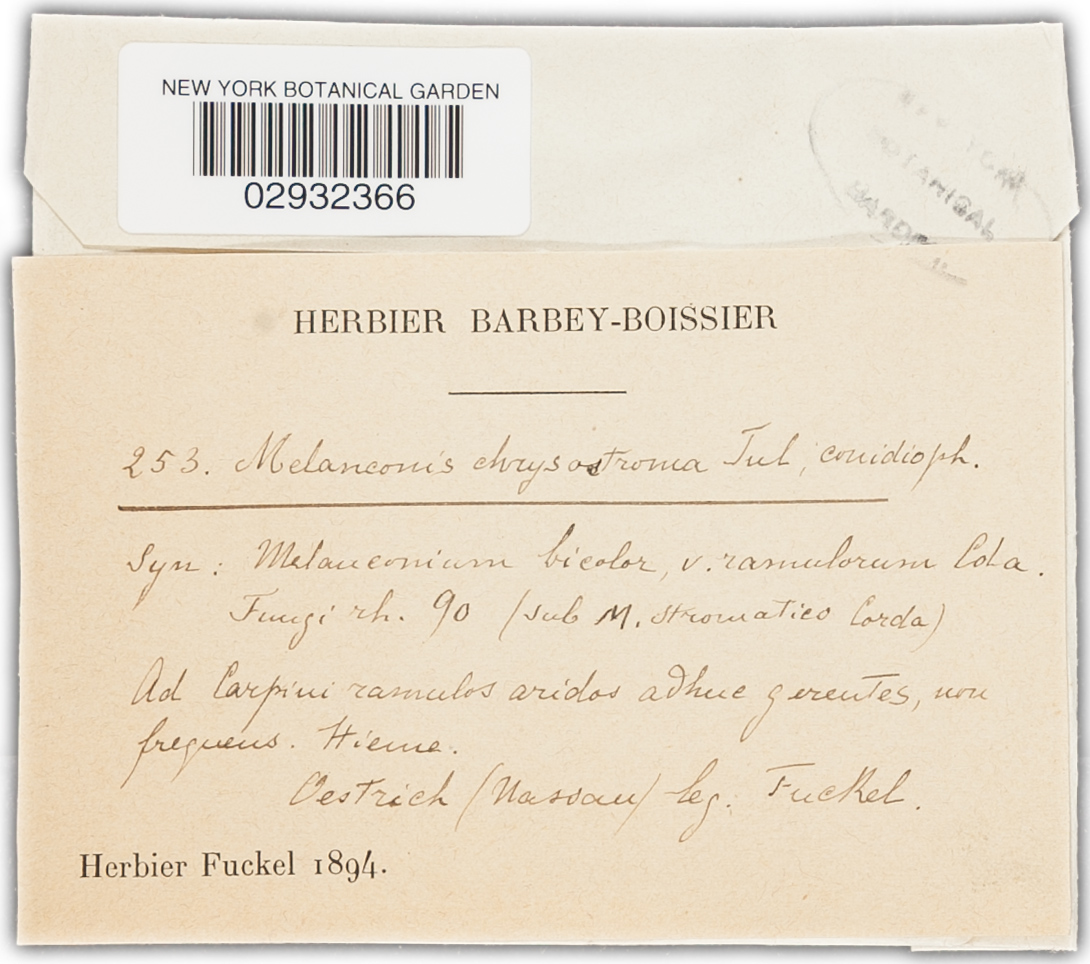 NEW YORK BOTANICAL GARDEN
02932366
BOTANICAL
HERBIER BARBEY-BOISSIER
253. Melanconis chrysostroma Tul, conidioph.
Syn: Melanconium bicolor, v. ramulorum Cda.
Fungi rh. 90 (sub M. stromatico Corda)
Ad Carpini ramulos aridos adhuc gerentes, non
frequens. Hieme.
Oestrich (Nassau) leg. Fuckel.
Herbier Fuckel 1894.